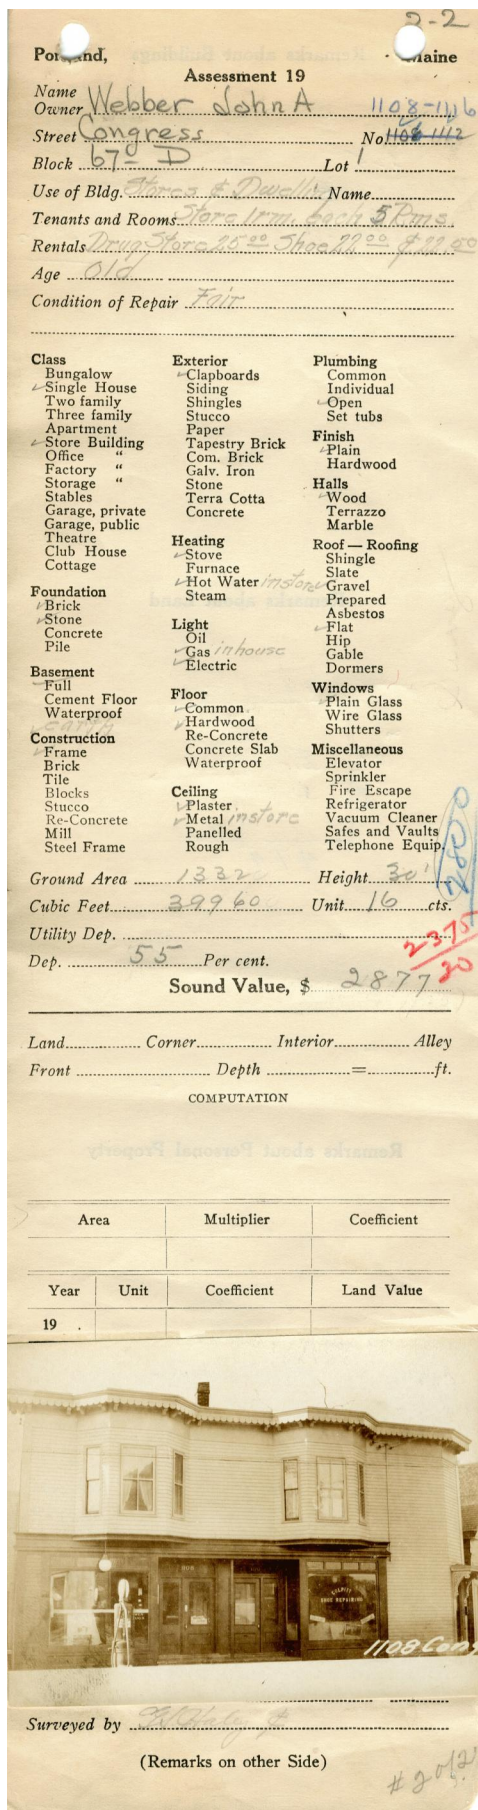 2-2
Portland, Maine
Assessment 19
Name
Owner Webber John A 1108-1116
Street Congress No. 1108-1112
Block 67-D Lot 1
Use of Bldg. Stores & Dwelling Name
Tenants and Rooms Store 1 rm. Each 5 Rms
Rentals Drug Store 25.00 Shoe 22.00 $22.50
Age Old
Condition of Repair Fair
Class
Bungalow
Single House
Two family
Three family
Apartment
Store Building
Office "
Factory "
Storage "
Stables
Garage, private
Garage, public
Theatre
Club House
Cottage
Foundation
Brick
Stone
Concrete
Pile
Basement
Full
Cement Floor
Waterproof
earth
Construction
Frame
Brick
Tile
Blocks
Stucco
Re-Concrete
Mill
Steel Frame
Exterior
Clapboards
Siding
Shingles
Stucco
Paper
Tapestry Brick
Com. Brick
Galv. Iron
Stone
Terra Cotta
Concrete
Heating
Stove
Furnace
Hot Water in store
Steam
Light
Oil
Gas in house
Electric
Floor
Common
Hardwood
Re-Concrete
Concrete Slab
Waterproof
Ceiling
Plaster
Metal in store
Panelled
Rough
Plumbing
Common
Individual
Open
Set tubs
Finish
Plain
Hardwood
Halls
Wood
Terrazzo
Marble
Roof — Roofing
Shingle
Slate
Gravel
Prepared
Asbestos
Flat
Hip
Gable
Dormers
Windows
Plain Glass
Wire Glass
Shutters
Miscellaneous
Elevator
Sprinkler
Fire Escape
Refrigerator
Vacuum Cleaner
Safes and Vaults
Telephone Equip.
2800
Ground Area 1332 Height 30'
Cubic Feet 39960 Unit 16 cts.
Utility Dep.
2375
20
Dep. 55 Per cent.
Sound Value, $ 2877
Land Corner Interior Alley
Front Depth = ft.
COMPUTATION
Area Multiplier Coefficient
Year Unit Coefficient Land Value
19 .
SHOE REPAIRING
1108 Cong
Surveyed by
(Remarks on other Side)
# 2 of 2